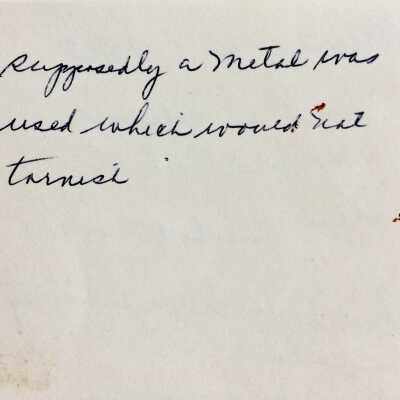 supposedly a Metal was
used which would Not
tarnish